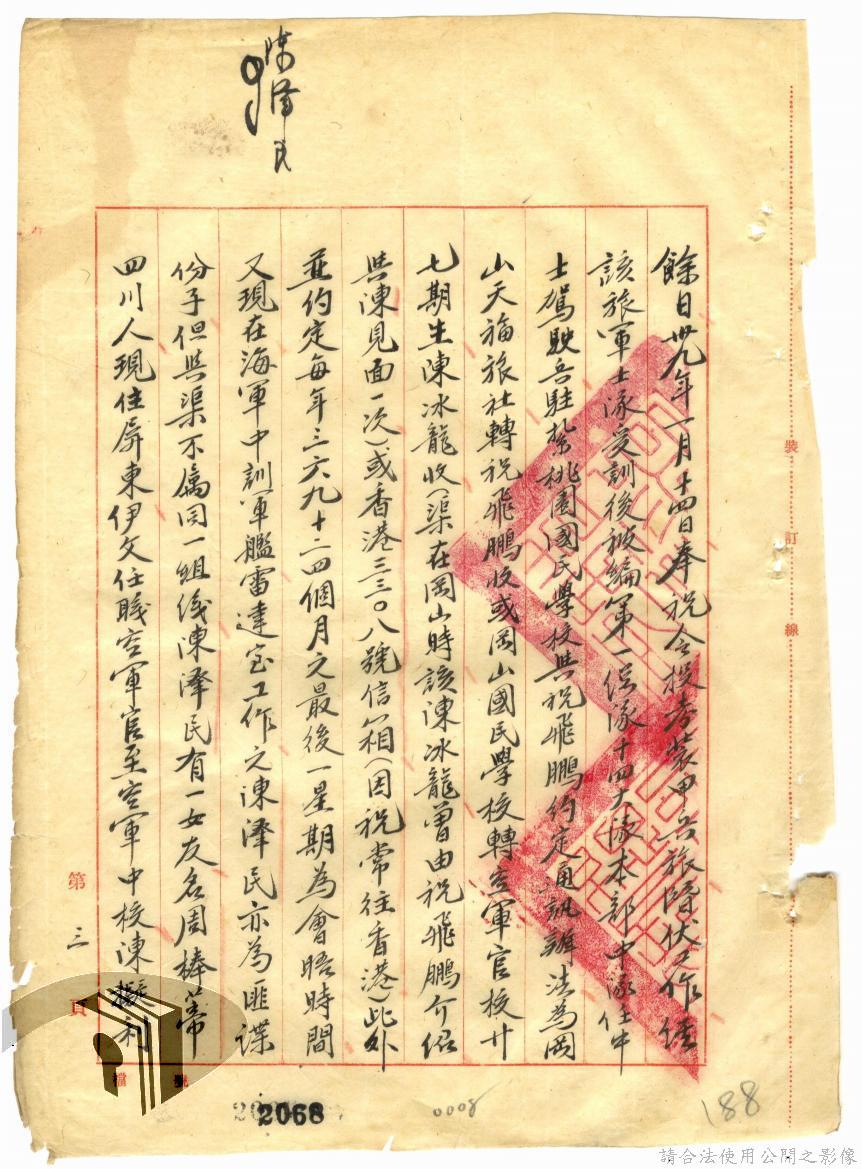 陳澤民
餘日卅九年一月十四日奉祝令投考裝甲兵旅隱伏工作經
該旅軍士隊受訓後被編第一總隊十四大隊本部中隊任中
士駕駛兵駐紮桃園國民學校與祝飛鵬約定通訊辦法為岡
山天福旅社轉祝飛鵬收或岡山國民學校轉空軍官校廿
七期生陳冰龍收(渠在岡山時該陳冰龍曾由祝飛鵬介紹
與陳見面一次)或香港三三〇八號信箱(因祝常往香港)此外
並約定每年三六九十二四個月之最後一星期為會晤時間
又現在海軍中訓軍艦雷達室工作之陳澤民亦為匪諜
份子但與渠不屬同一組織陳澤民有一女友名周棒蒂
四川人現住屏東伊父任職空軍官至空軍中校陳擬利
裝訂線
第三頁
檔號
2068
0008
188
請合法使用公開之影像